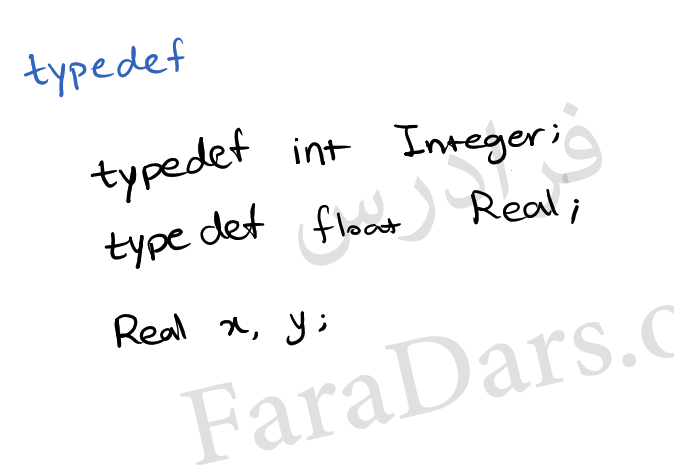 typedef
typedef int Integer;
typedef float Real;
Real x, y;
فرادرس
FaraDars.c